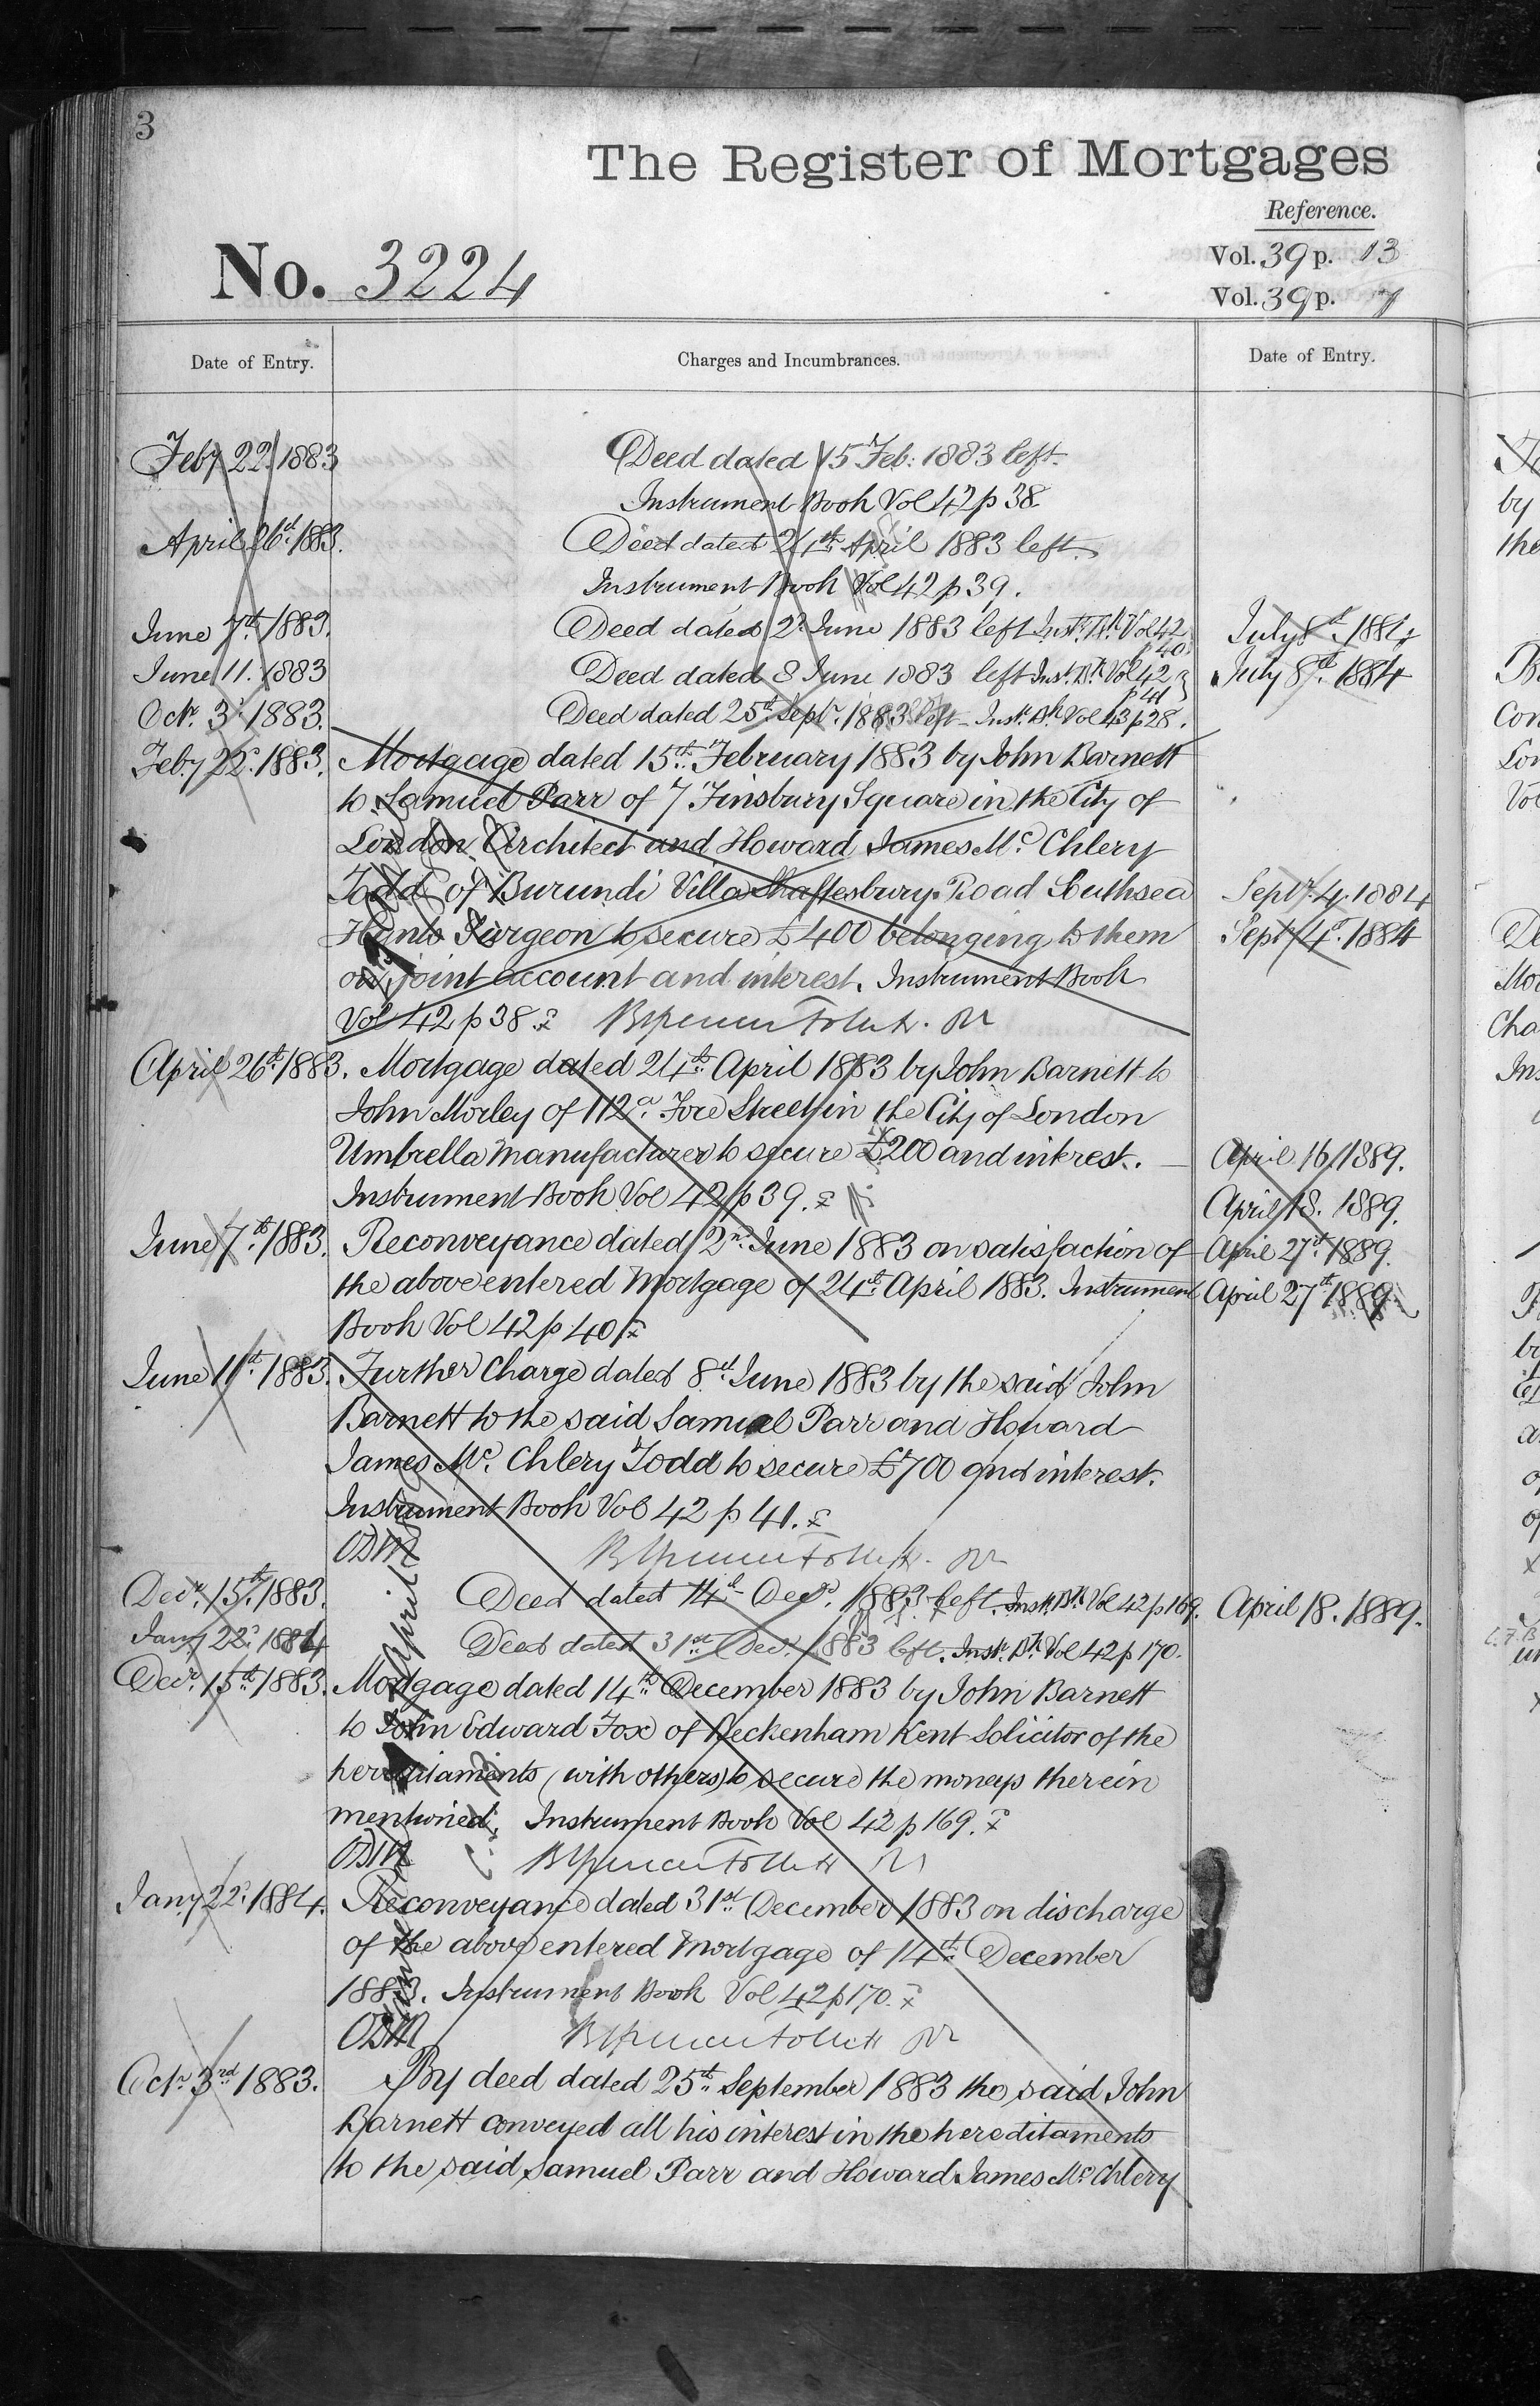 3
The Register of Mortgages
Reference.
No. 3224
Vol. 39 p. 13
Vol. 39 p. 7
Date of Entry.
Charges and Incumbrances.
Date of Entry.
Feby 22. 1883
Deed dated 15 Feb: 1883 left.
Instrument Book Vol 42 p 38.
April 26th 1883.
Deed dated 24th April 1883 left.
Instrument Book Vol 42 p 39.
June 7th 1883.
Deed dated 2d June 1883 left Inst. Bk Vol 42
p 40.
July 8th 1884
June 11. 1883
Deed dated 8 June 1883 left Inst. Bk Vol 42
p 41
July 8th 1884
Octr. 3d 1883.
Deed dated 25th Septr. 1883 left Instr. Bk Vol 43 p 28.
Feby 22d 1883.
Mortgage dated 15th February 1883 by John Barnett
to Samuel Parr of 7 Finsbury Square in the City of
London Architect and Howard James Mc Chlery
Todd of Burundi Villa Shaftesbury Road Southsea
Sept. 4. 1884
Hants Surgeon to secure £400 belonging to them
Sept 4th 1884
on joint account and interest. Instrument Book
Vol 42 p 38.
April 26th 1883.
Mortgage dated 24th April 1883 by John Barnett to
John Morley of 112a Fore Street in the City of London
Umbrella Manufacturer to secure £200 and interest.
April 16 1889.
Instrument Book Vol 42 p 39.
April 18. 1889.
June 7th 1883.
Reconveyance dated 2nd June 1883 on satisfaction of
April 27th 1889.
the above entered Mortgage of 24th April 1883. Instrument
April 27th 1889.
Book Vol 42 p 40
June 11th 1883.
Further Charge dated 8th June 1883 by the said John
Barnett to the said Samuel Parr and Howard
James Mc. Chlery Todd to secure £700 and interest.
Instrument Book Vol 42 p 41.
Decr. 15th 1883.
Deed dated 14th Decr. 1883 left. Instr. Bk Vol 42 p 169.
April 18. 1889.
Jany 22d 1884
Deed dated 31st Decr. 1883 left. Inst. Bk Vol 42 p 170.
Decr. 15th 1883.
Mortgage dated 14th December 1883 by John Barnett
to John Edward Fox of Beckenham Kent Solicitor of the
hereditaments (with others) to secure the moneys therein
mentioned. Instrument Book Vol 42 p 169.
Jany 22d 1884.
Reconveyance dated 31st December 1883 on discharge
of the above entered Mortgage of 14th December
1883. Instrument Book Vol 42 p 170.
Octr. 3rd 1883.
By deed dated 25th September 1883 the said John
Barnett conveyed all his interest in the hereditaments
to the said Samuel Parr and Howard James Mc Chlery